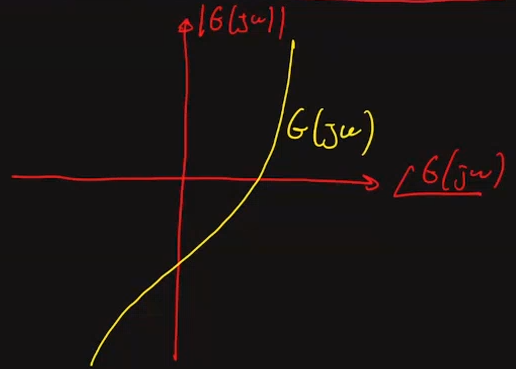 |G(jω)|
G(jω)
∠G(jω)